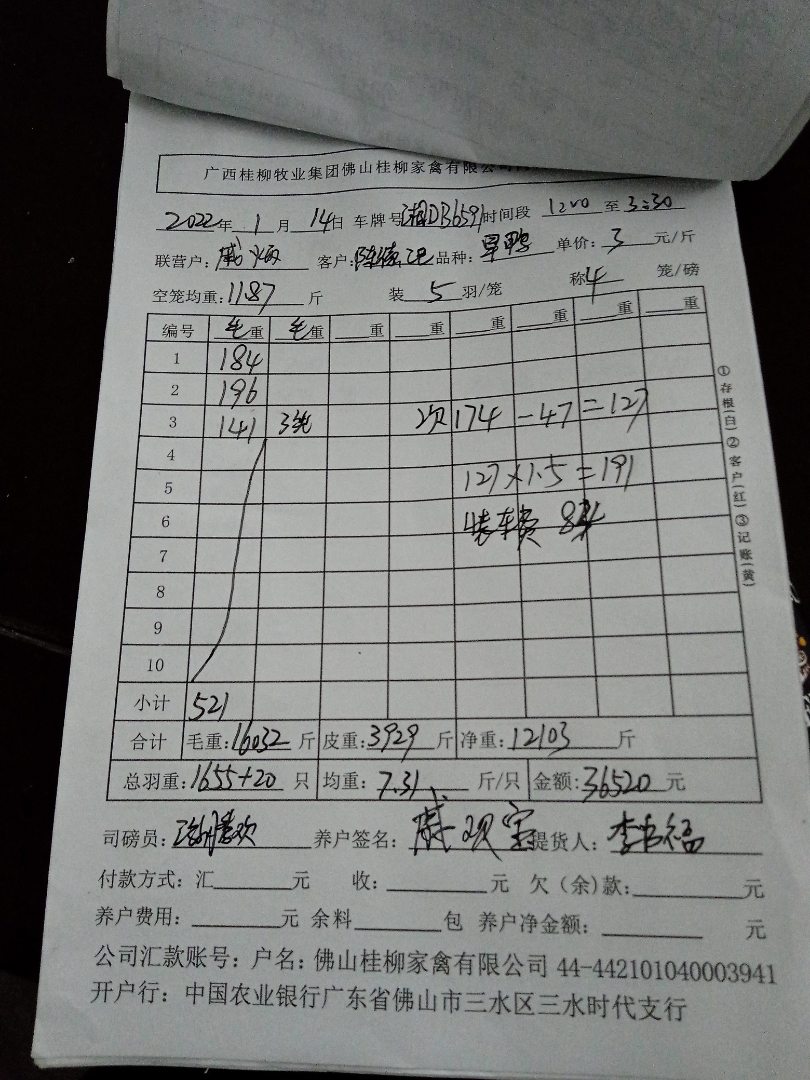 广西桂柳牧业集团佛山桂柳家禽有限公司
2022年 1 月 14日 车牌号 湘DB6591 时间段 1200 至 3:30
联营户: 戚 客户: 陈德 品种: 旱鸭 单价: 3 元/斤
空笼均重: 11.87 斤 装 5 羽/笼 称 4 笼/磅
编号 毛重 毛重 重 重 重 重 重 重
1 184
2 196
3 141 3笼 次 174 - 47 = 127
4
5 127×1.5=191
6 装车费 84
7
8
9
10
小计 521
合计 毛重: 16032 斤 皮重: 3929 斤 净重: 12103 斤
总羽重: 1655+20 只 均重: 7.31 斤/只 金额: 36520 元
司磅员: 养户签名: 戚观 提货人: 李
付款方式: 汇 元 收: 元 欠(余)款: 元
养户费用: 元 余料 包 养户净金额: 元
公司汇款账号: 户名: 佛山桂柳家禽有限公司 44-442101040003941
开户行: 中国农业银行广东省佛山市三水区三水时代支行
①存根(白)②客户(红)③记账(黄)